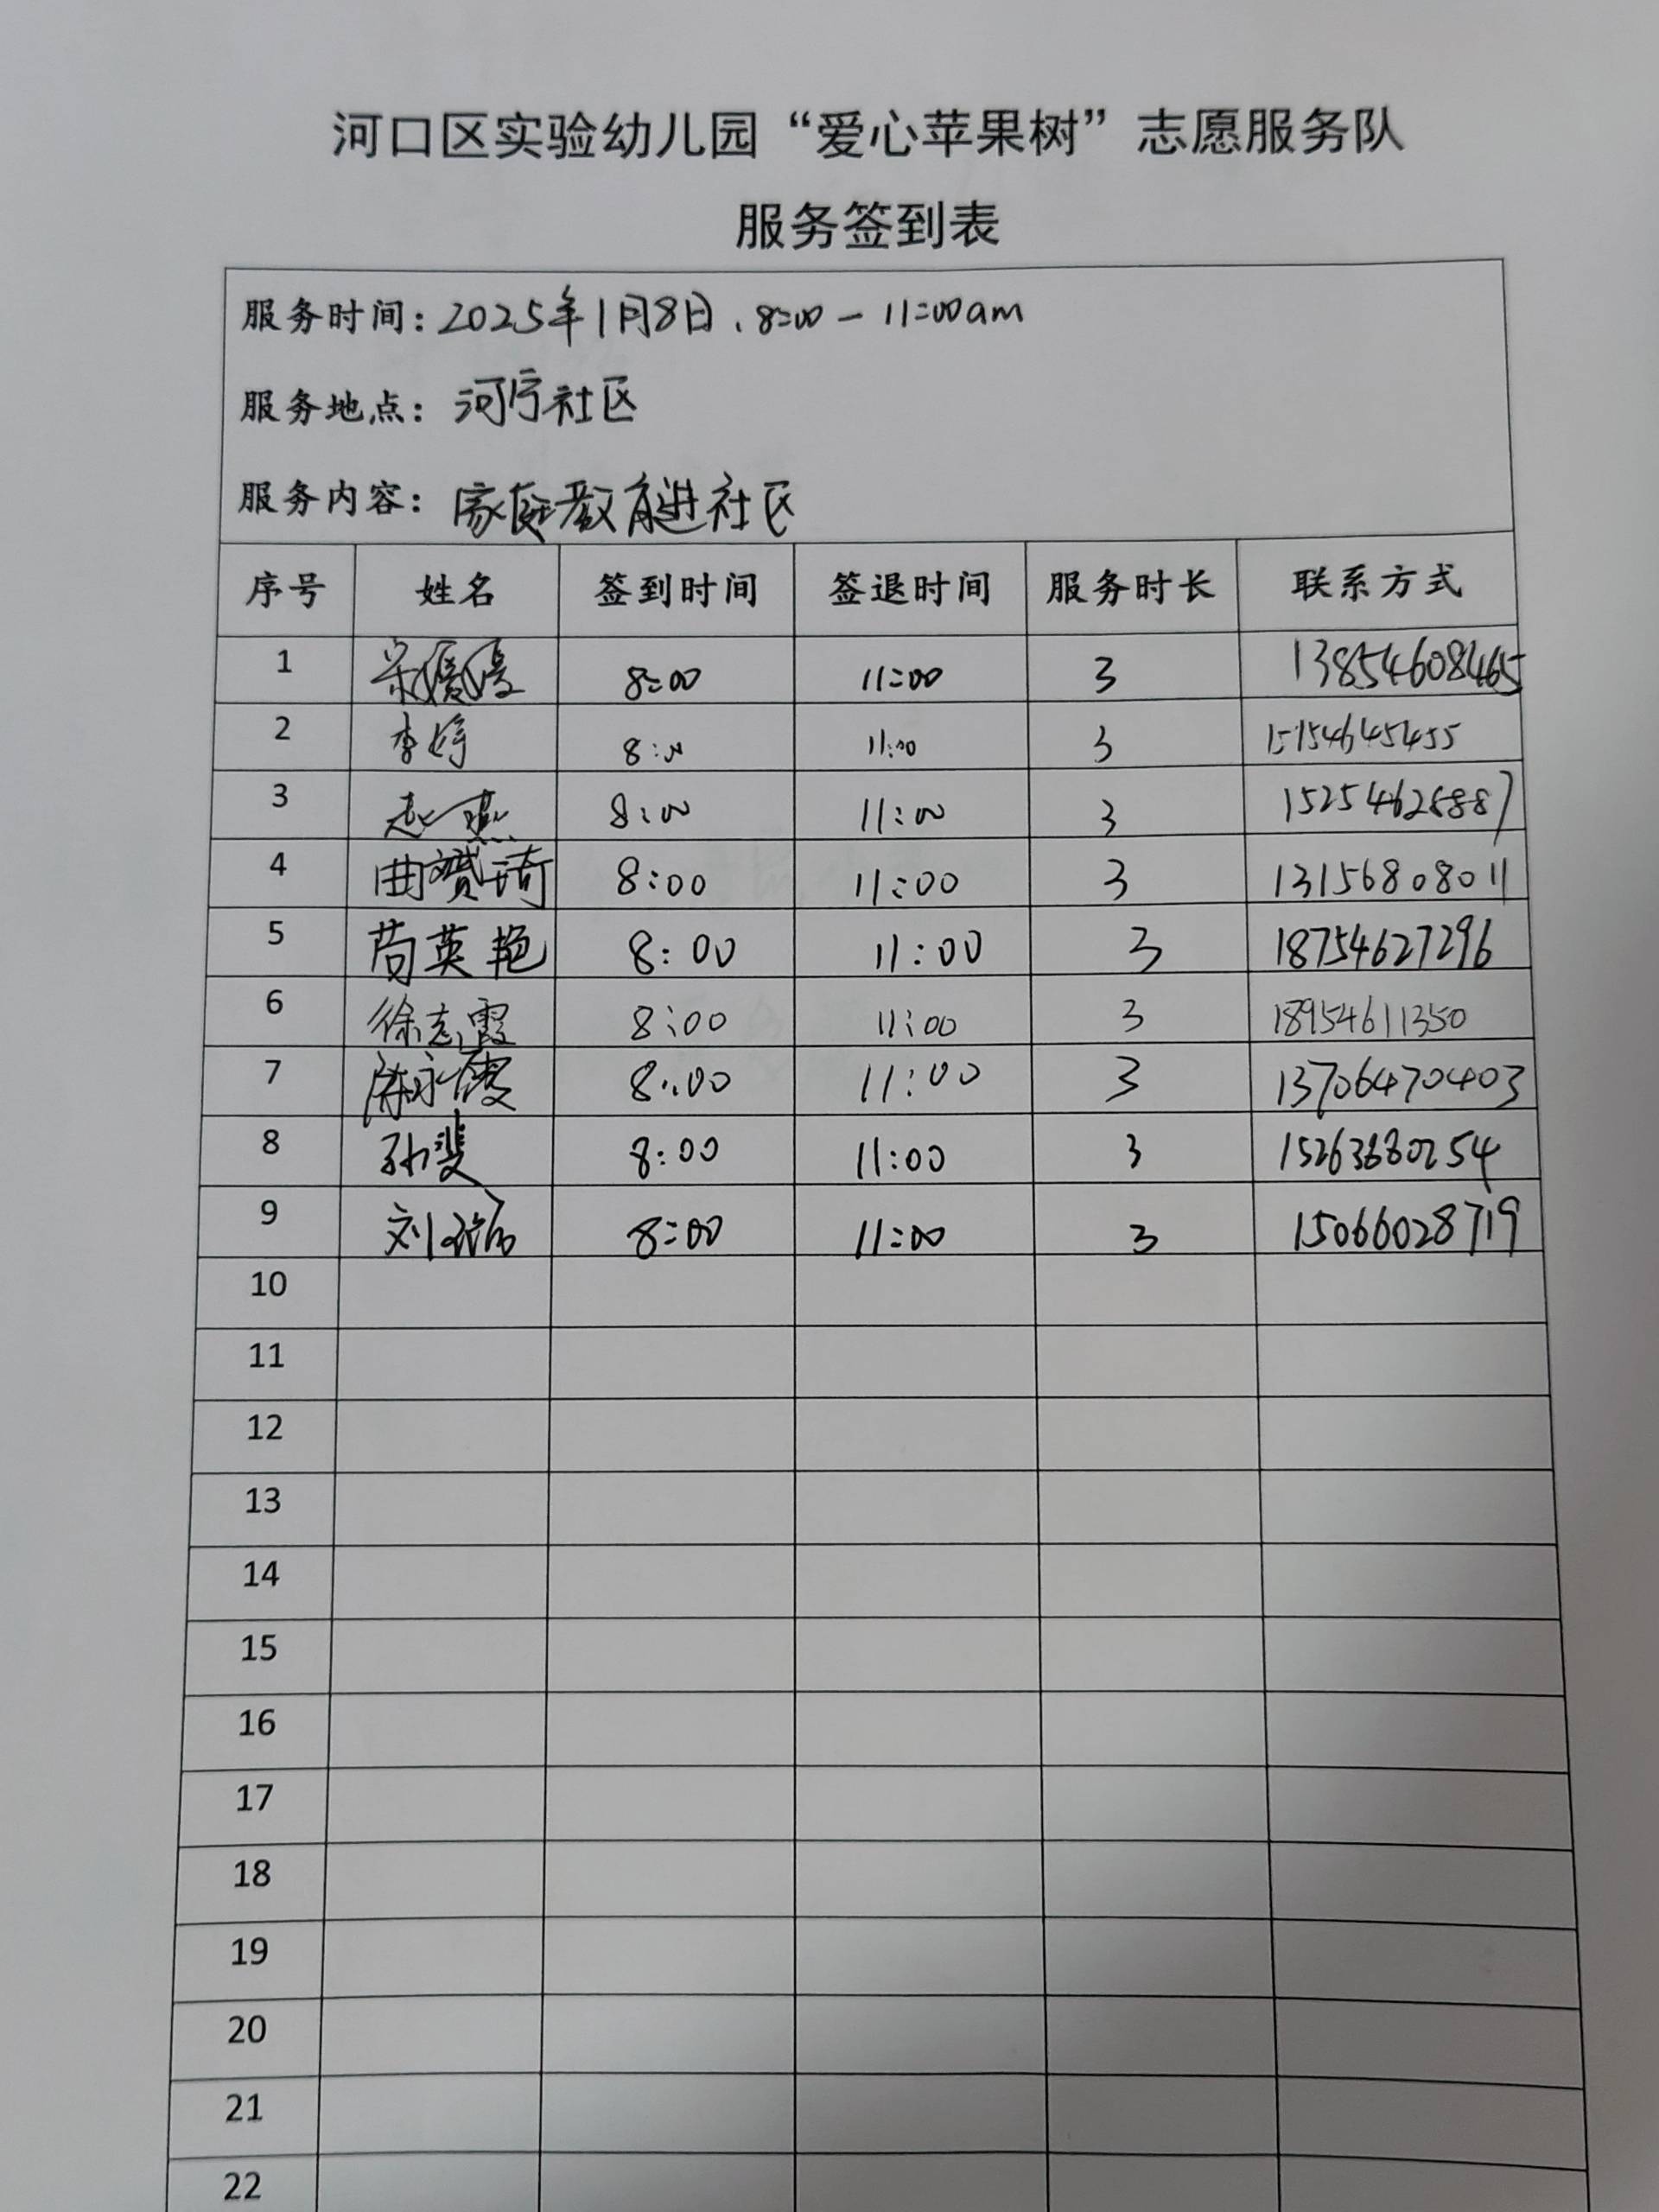 河口区实验幼儿园“爱心苹果树”志愿服务队
服务签到表
服务时间：2025年1月8日、8:00－11:00am
服务地点：河宁社区
服务内容：家庭教育进社区
序号 姓名 签到时间 签退时间 服务时长 联系方式
1 宋媛媛 8:00 11:00 3 13854608465
2 李婷 8:00 11:00 3 15154645455
3 赵燕 8:00 11:00 3
4 曲赟琦 8:00 11:00 3 13156808011
5 苘英艳 8:00 11:00 3 18754627296
6 徐志霞 8:00 11:00 3 18954611350
7 陈永霞 8:00 11:00 3 13706470403
8 孙斐 8:00 11:00 3
9 刘 8:00 11:00 3 15066028719
10
11
12
13
14
15
16
17
18
19
20
21
22